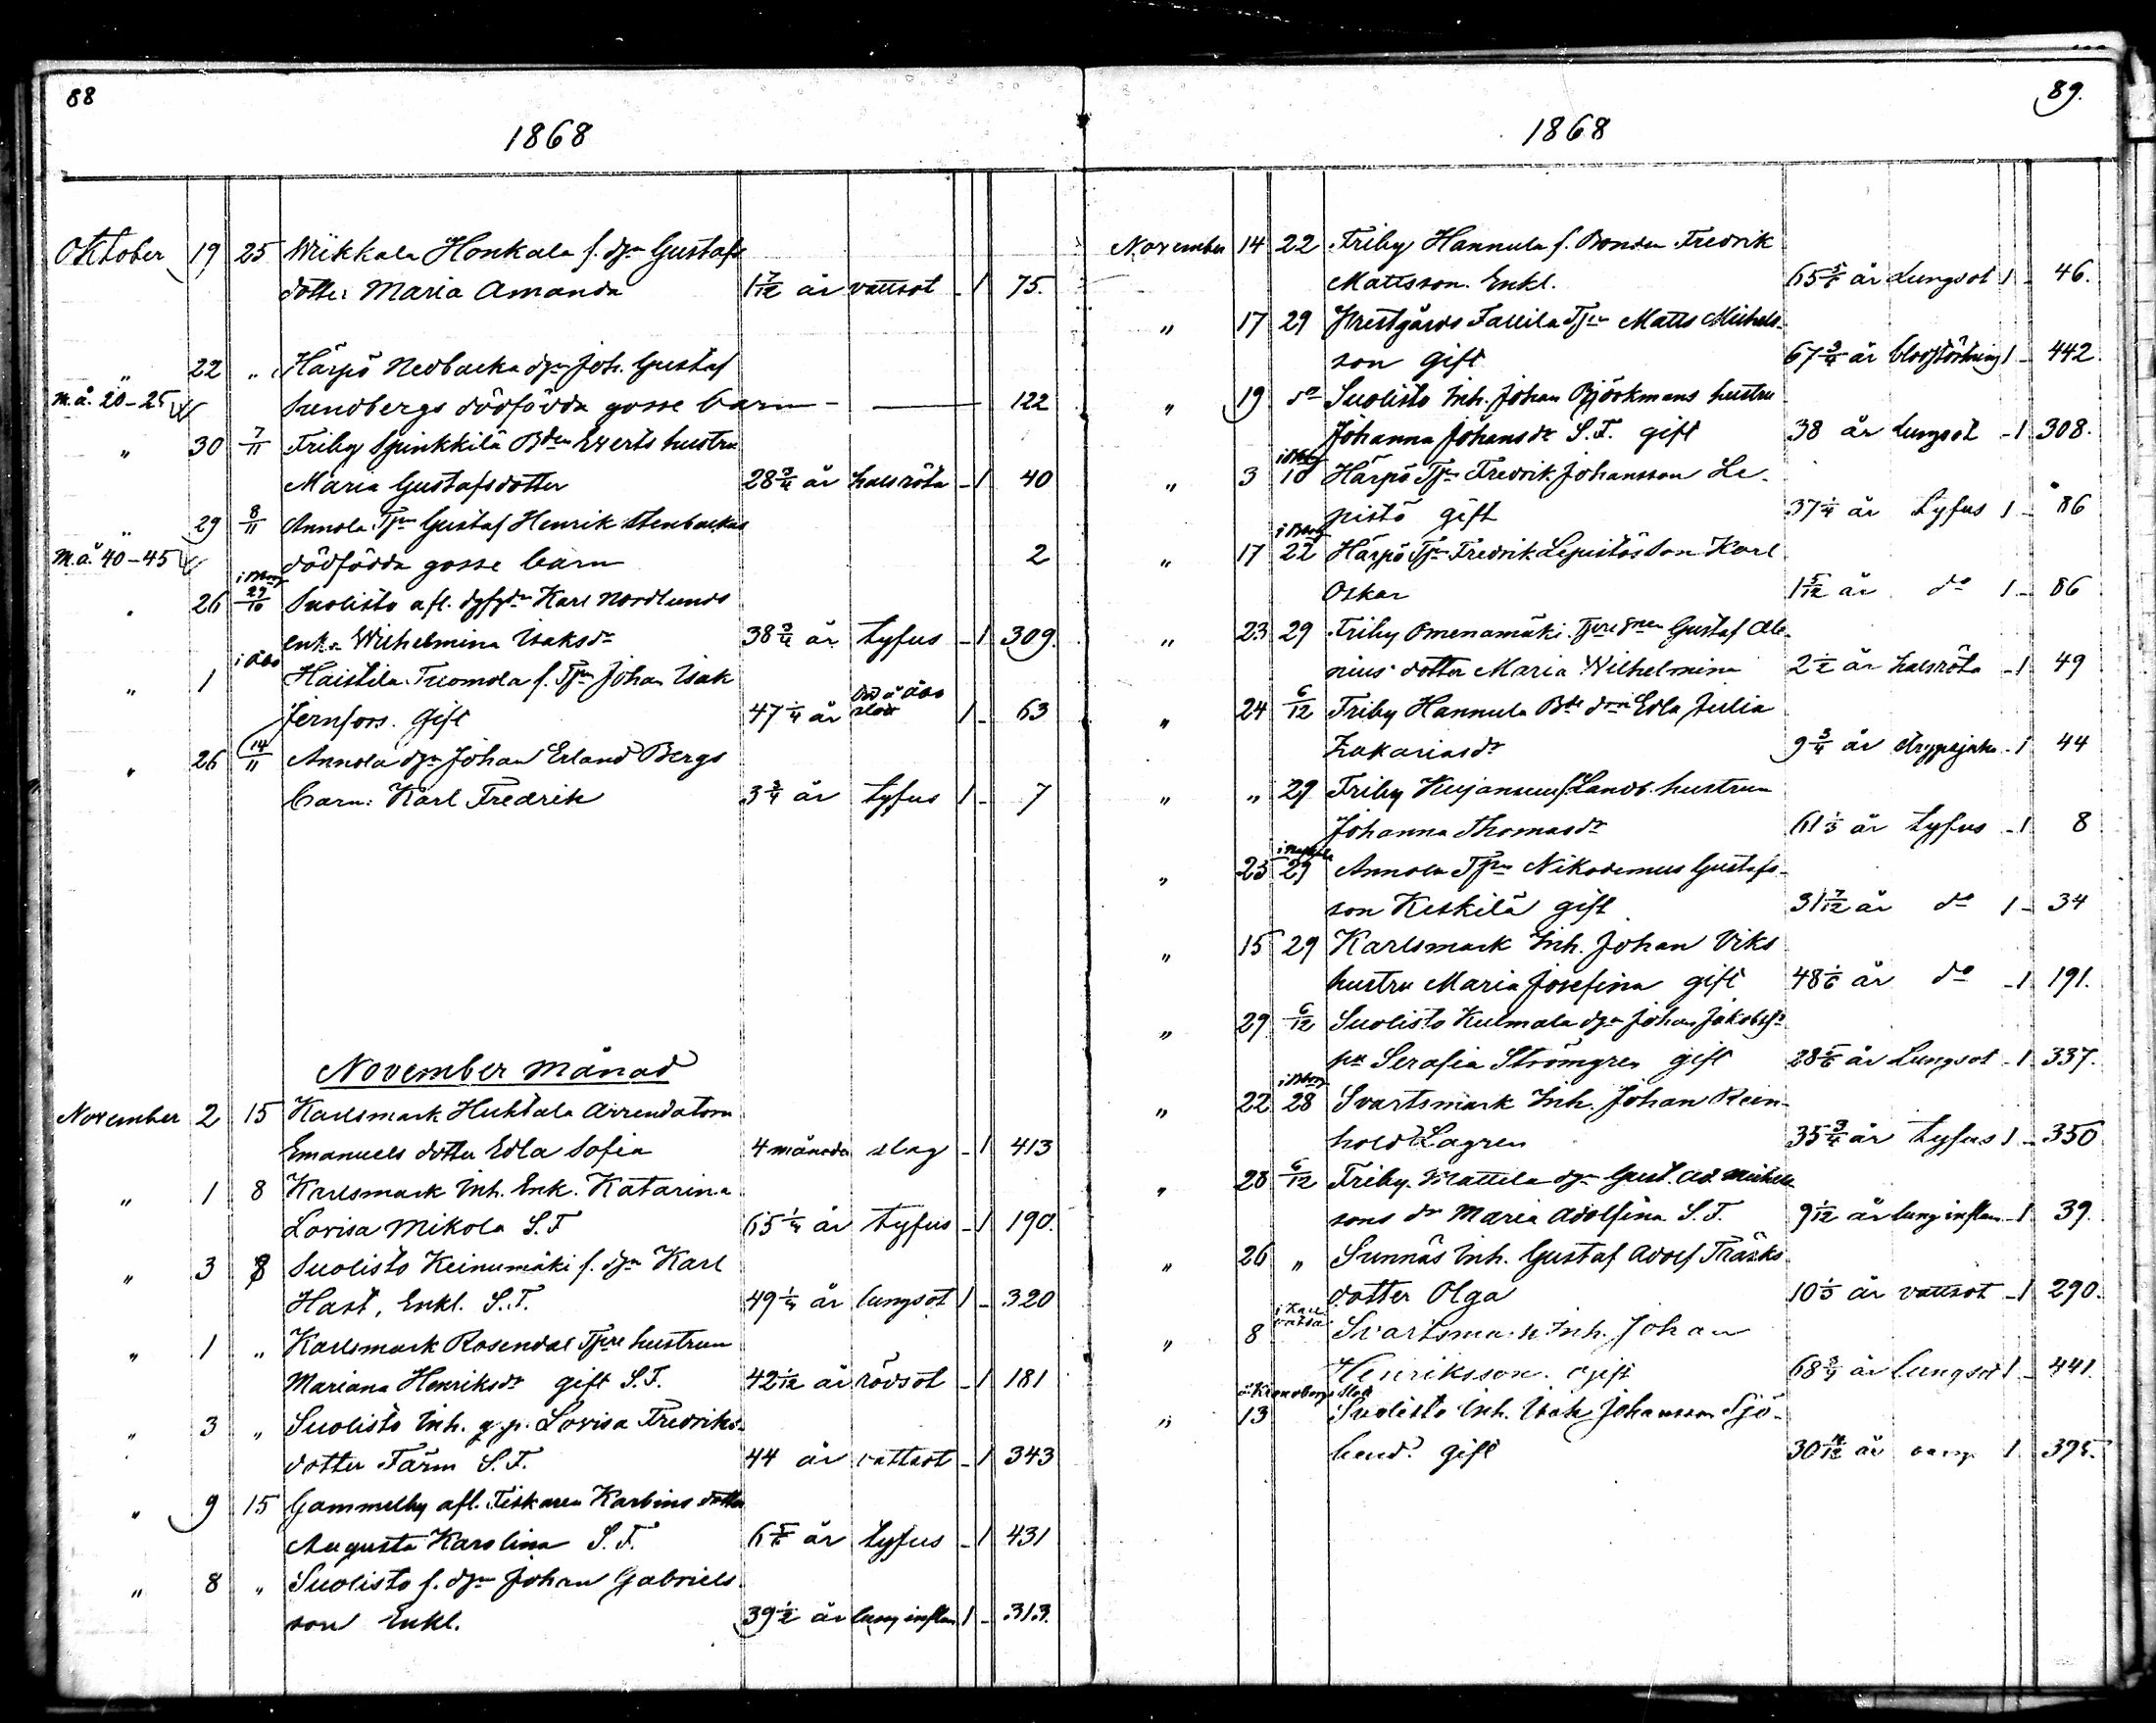 88
1868
Oktober 19 25 Wiikkala Honkala f. dgn Gustafs
dotter Maria Amanda 1 7/12 år vattsot - 1 75.
„ 22 „ Härpö Nedbacka dgn Joh. Gustaf
M.å. 20-25 Sundbergs dödfödda gosse barn - 122
„ 30 7/11 Friby Spinkkilä Bden Ewerts hustru
Maria Gustafsdotter 28 3/4 år halsröta - 1 40
„ 29 8/11 Annola Tjn Gustaf Henrik Stenbackas
M.å. 40-45 dödfödda gosse barn 2
„ 26 29/10 Suolisto afl. Karl Nordlunds
enka Wilhelmina Isaksdr 38 3/4 år tyfus - 1 309.
i Åbo
„ 1 Haistila Tuomola f. Tjn Johan Isak
Jernfors. Gift 47 1/4 år Död å Åbo slott 1 - 63
„ 26 14/11 Annola dgn Johan Erland Bergs
barn: Karl Fredrik 3 3/4 år tyfus 1 - 7
November månad
November 2 15 Karlsmark Huhtala Arrendatorn
Emanuels dotter Edla Sofia 4 månader slag - 1 413
„ 1 8 Karlsmark Inh. Enk. Katarina
Lovisa Mikola S.F. 65 1/4 år tyfus - 1 190.
„ 3 8 Suolisto Keinumäki f. dgn Karl
Hast, Enkl. S.F. 49 1/4 år lungsot 1 - 320
„ 1 „ Karlsmark Rosendal Tjre hustrun
Mariana Henriksdr gift S.F. 42 1/12 år rödsot - 1 181
„ 3 „ Suolisto Inh. q.p. Lovisa Fredriks-
dotter Färm S.F. 44 år vattsot - 1 343
„ 9 15 Gammelby afl. Fiskaren Karbins dotter
Augusta Karolina S.F. 6 5/6 år tyfus - 1 431
„ 8 „ Suolisto f. dgn Johan Gabriels-
son Enkl. 39 1/2 år lunginflam 1 - 313.
89.
1868
November 14 22 Friby Hannula f. Bonden Fredrik
Mattsson. Enkl. 65 5/6 år Lungsot 1 - 46.
„ 17 29 Prestgårds Tallila Tjn Matts Michels-
son gift 67 3/4 år blodstörtning 1 - 442
„ 19 do Suolisto Inh. Johan Björkmans hustru
Johanna Johansdr S.F. gift 38 år lungsot - 1 308.
„ 3 10 Härpö Tjn Fredrik Johansson Le-
pistö gift 37 1/4 år tyfus 1 - 86
„ 17 22 Härpö Tjn Fredrik Lepistös son Karl
Oskar 1 5/12 år do 1 - 86
„ 23 29 Friby Omenamäki Gustaf Ale-
nius dotter Maria Wilhelmina 2 1/2 år halsröta - 1 49
„ 24 6/12 Friby Hannula Bde drn Edla Julia
Zakariasdr 9 3/4 år - 1 44
„ „ 29 Friby Kujansuu Landb. hustrun
Johanna Thomasdr 61 1/3 år tyfus - 1 8
„ 23 29 Annola Tjn Nikodemus Gustafs-
son Keskilä gift 31 7/12 år do 1 - 34
„ 15 29 Karlsmark Inh. Johan Viks
hustru Maria Josefina gift 48 1/6 år do - 1 191.
„ 29 6/12 Suolisto Kulmala dgn Johan
Serafia Strömgren gift 28 5/6 år Lungsot - 1 337.
„ 22 28 Svartsmark Inh. Johan Rein-
hold Lagren 35 3/4 år tyfus 1 - 350
„ 28 6/12 Friby Mattila dgn Gust. Ad. Michels-
sons dr Maria Adolfina S.F. 9 1/12 år lunginflam - 1 39.
„ 26 „ Sunnäs Inh. Gustaf Adolf Träsks
dotter Olga 10 1/3 år vattsot - 1 290.
„ 8 Svartsmark Inh. Johan
Henriksson. gift 68 3/4 år lungsot 1 - 441.
„ 13 Suolisto Inh. Isak Johansson Sjö-
gift 30 år 1 395.